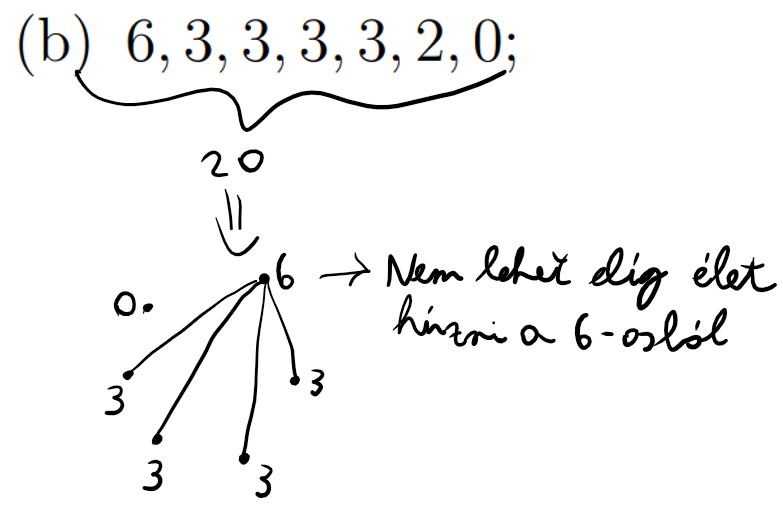 (b) 6, 3, 3, 3, 3, 2, 0;
20
6 → Nem lehet elég élet
húzni a 6-osból
0
3
3
3
3